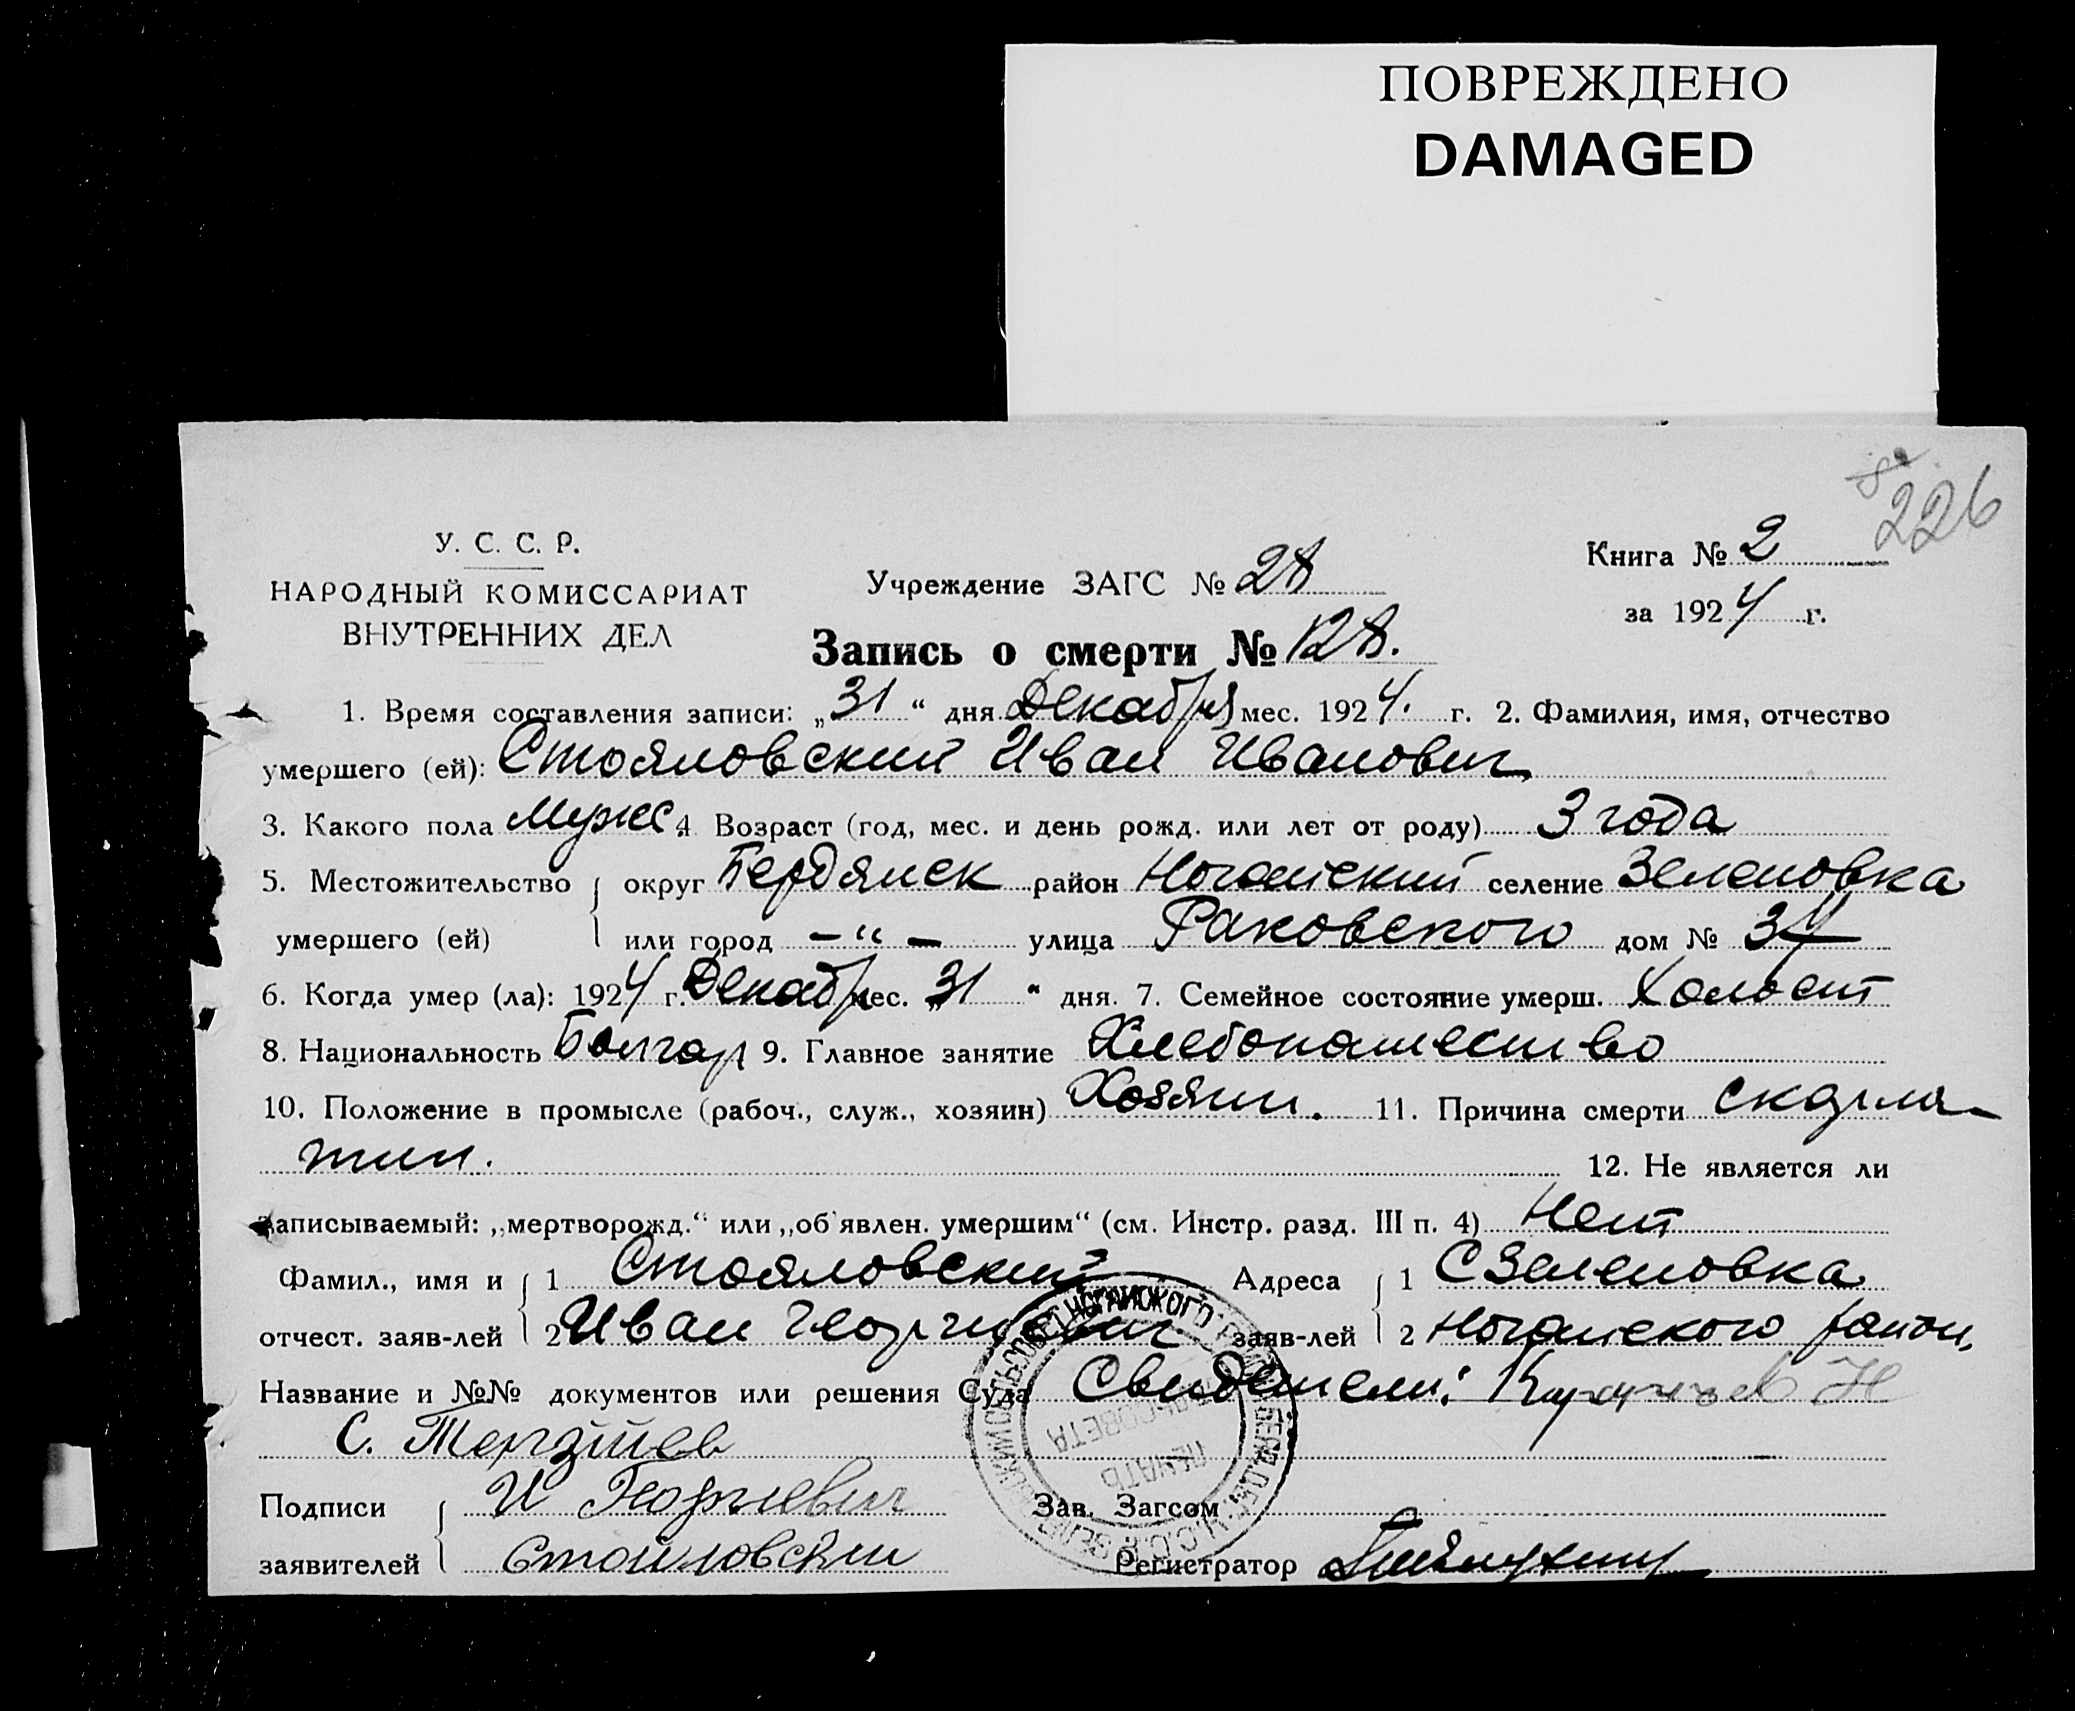 ПОВРЕЖДЕНО
DAMAGED
226
У. С. С. Р.
НАРОДНЫЙ КОМИССАРИАТ
ВНУТРЕННИХ ДЕЛ
Учреждение ЗАГС № 28
Книга № 2
за 1924 г.
Запись о смерти № 128.
1. Время составления записи: „31“ дня Декабря мес. 1924. г. 2. Фамилия, имя, отчество
умершего (ей): Стояловский Иван Иванович
3. Какого пола Мужс 4 Возраст (год, мес. и день рожд. или лет от роду) 3 года
5. Местожительство округ Бердянск район Ногайский селение Зеленовка
умершего (ей) или город –“– улица Раковского дом № 34
6. Когда умер (ла): 1924 г. Декабр мес. „31“ дня. 7. Семейное состояние умерш. Холост
8. Национальность Болгар 9. Главное занятие Хлебопашество
10. Положение в промысле (рабоч., служ., хозяин) Хозяин. 11. Причина смерти скарла-
тин. 12. Не является ли
записываемый: „мертворожд.“ или „об'явлен. умершим“ (см. Инстр. разд. III п. 4) Нет
Фамил., имя и 1 Стояловский Адреса 1 С Зеленовка
отчест. заяв-лей 2 Иван Георгиевич заяв-лей 2 Ногайского район,
Название и №№ документов или решения Суда Свидетели:
С. Терзийев
Подписи И Георгиевич Зав. Загсом
заявителей Стойловский Регистратор
НОГАЙСКОГО
СОВЕТА
ПЕЧАТЬ